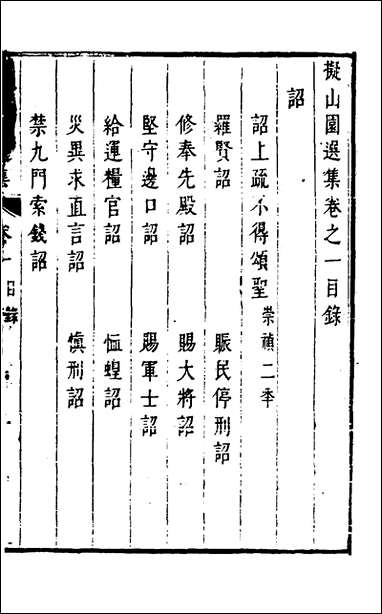 擬山園選集卷之一目錄
詔
詔上疏不得頌聖 崇禎二秊
羅賢詔 賑民停刑詔
修奉先殿詔 賜大將詔
堅守邊口詔 賜軍士詔
給運糧官詔 恤蝗詔
災異求直言詔 慎刑詔
禁九門索錢詔